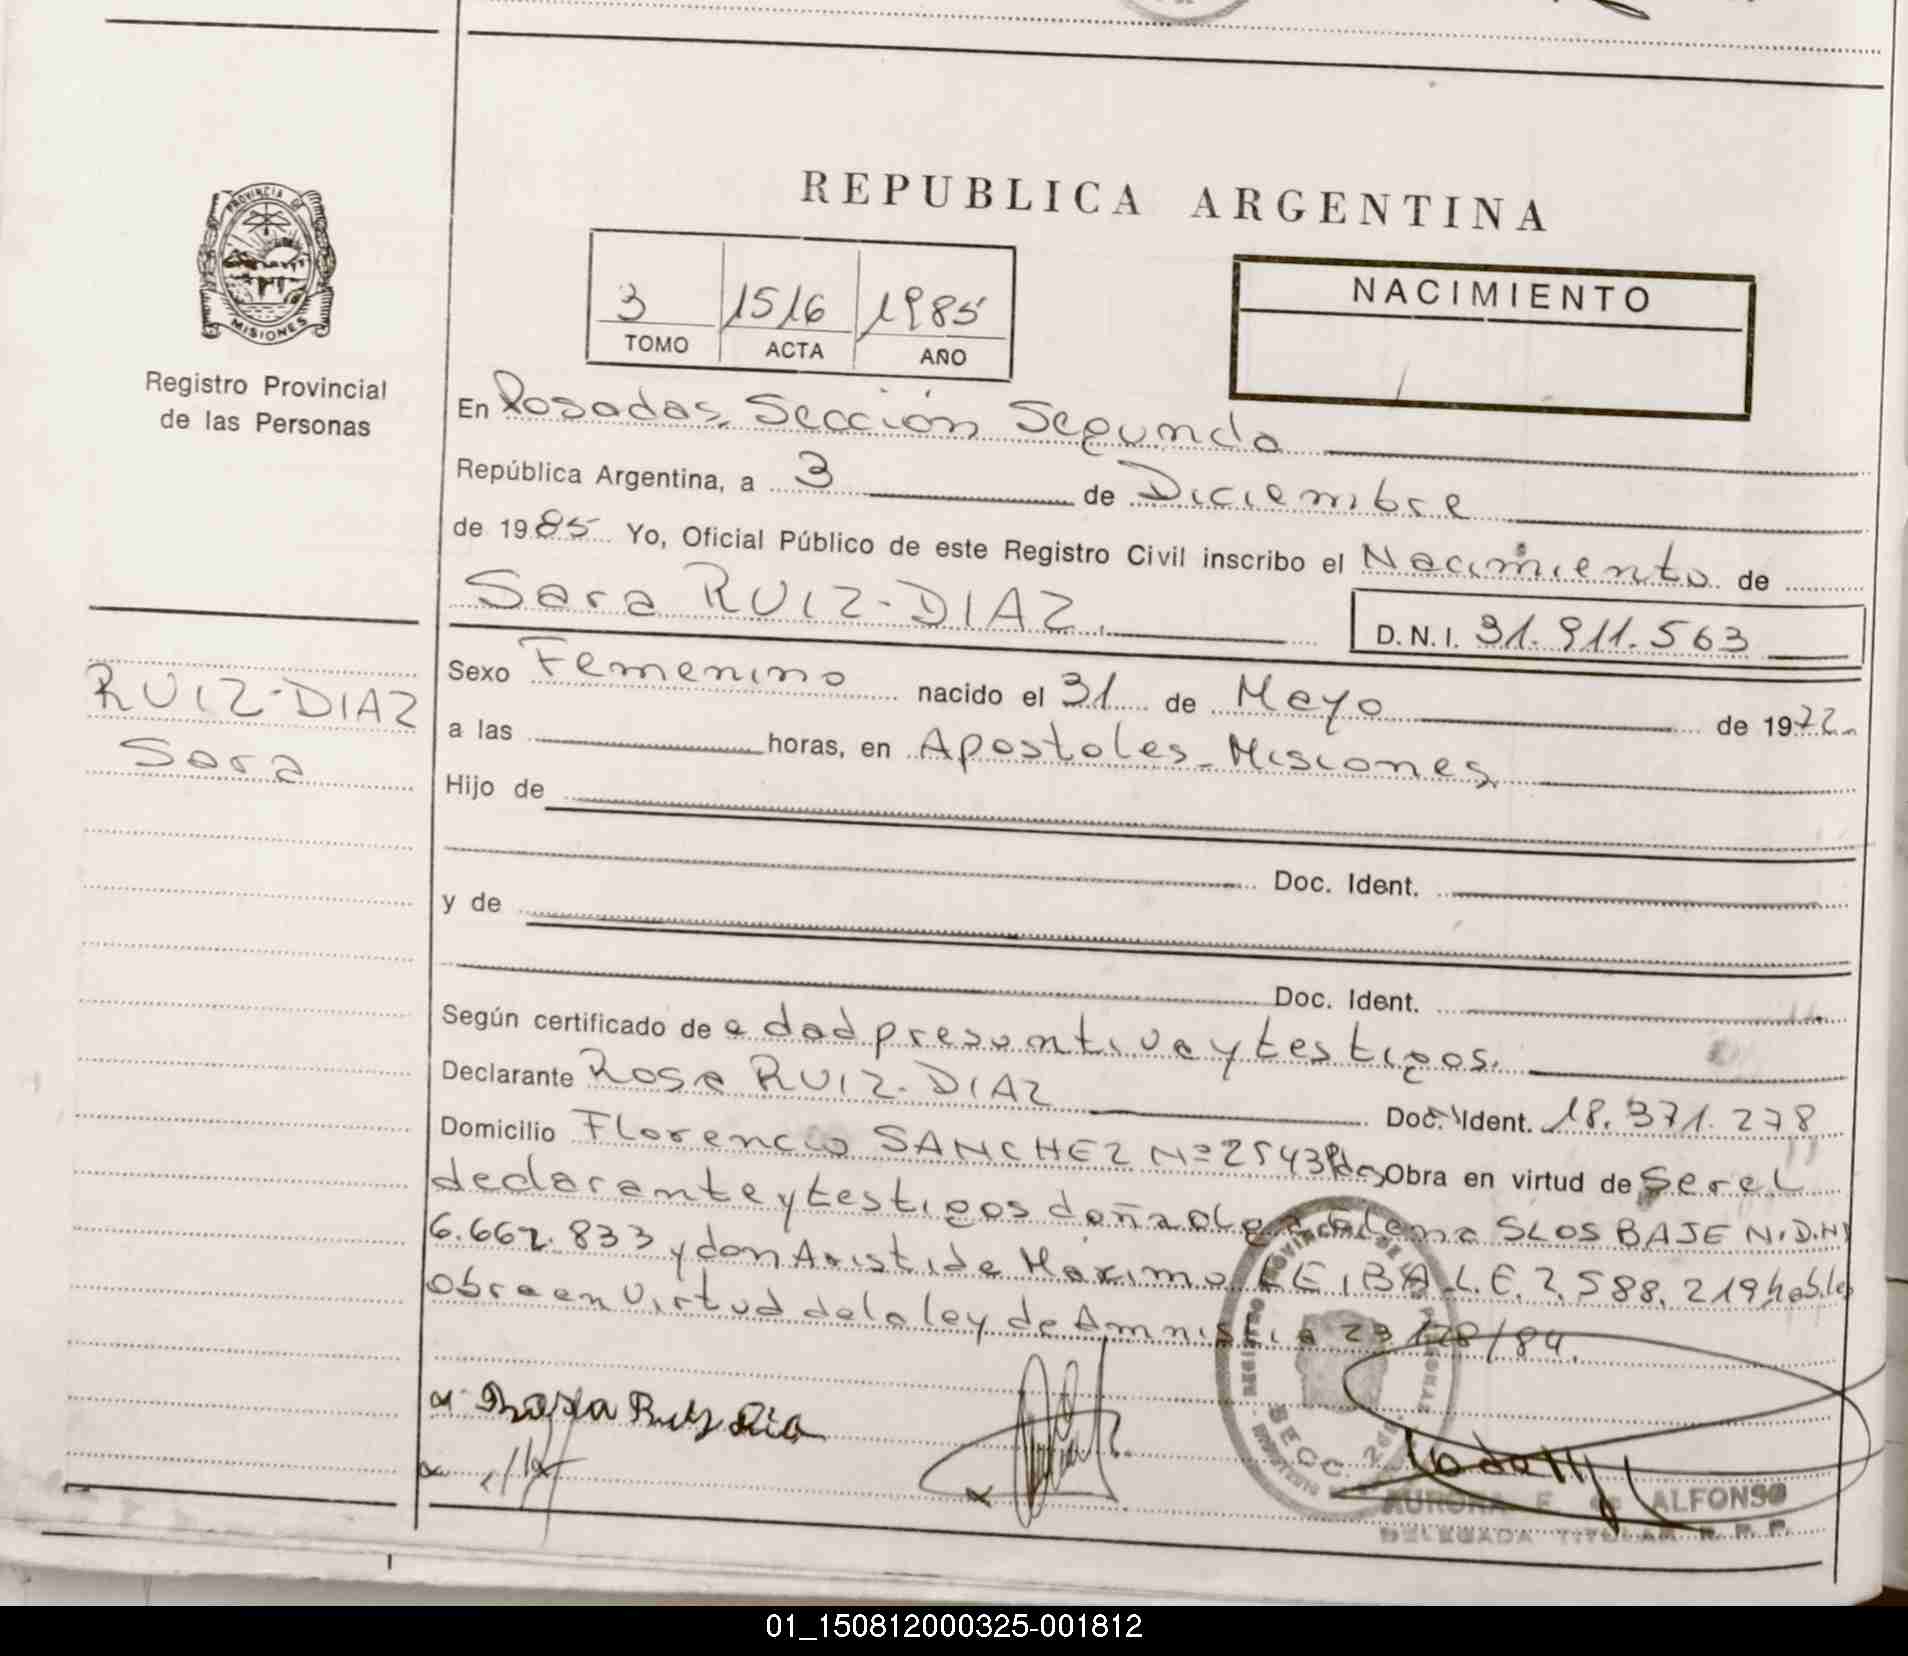 REPUBLICA ARGENTINA
PROVINCIA DE
MISIONES
Registro Provincial
de las Personas
3 1516 1985
TOMO ACTA AÑO
NACIMIENTO
En Posadas, Sección Segunda
República Argentina, a 3 de Diciembre
de 1985 Yo, Oficial Público de este Registro Civil inscribo el Nacimiento de
Sara RUIZ-DIAZ.
D.N.I. 31.911.563
RUIZ-DIAZ
Sara
Sexo Femenino nacido el 31 de Mayo de 1972
a las horas, en Apostoles - Misiones
Hijo de
Doc. Ident.
y de
Doc. Ident.
Según certificado de edad presuntiva y testigos.
Declarante Rosa RUIZ-DIAZ Doc. Ident. 18.371.278
Domicilio Florencio SANCHEZ Nº 2543 Pdas Obra en virtud de Ser el
declarante y testigos doña Elena SLOSBAJEN. D.NI
6.662.833 y don Aristide Maximo LEIBA L.E. 7.588.219 habiles
obra en virtud de la ley de Amnistia 23.128/84.
Rosa Ruiz Dia
REGISTRO PROVINCIAL DE LAS PERSONAS
SECC. 2da.
AURORA E. de ALFONSO
DELEGADA TITULAR R. P. P.
01_150812000325-001812